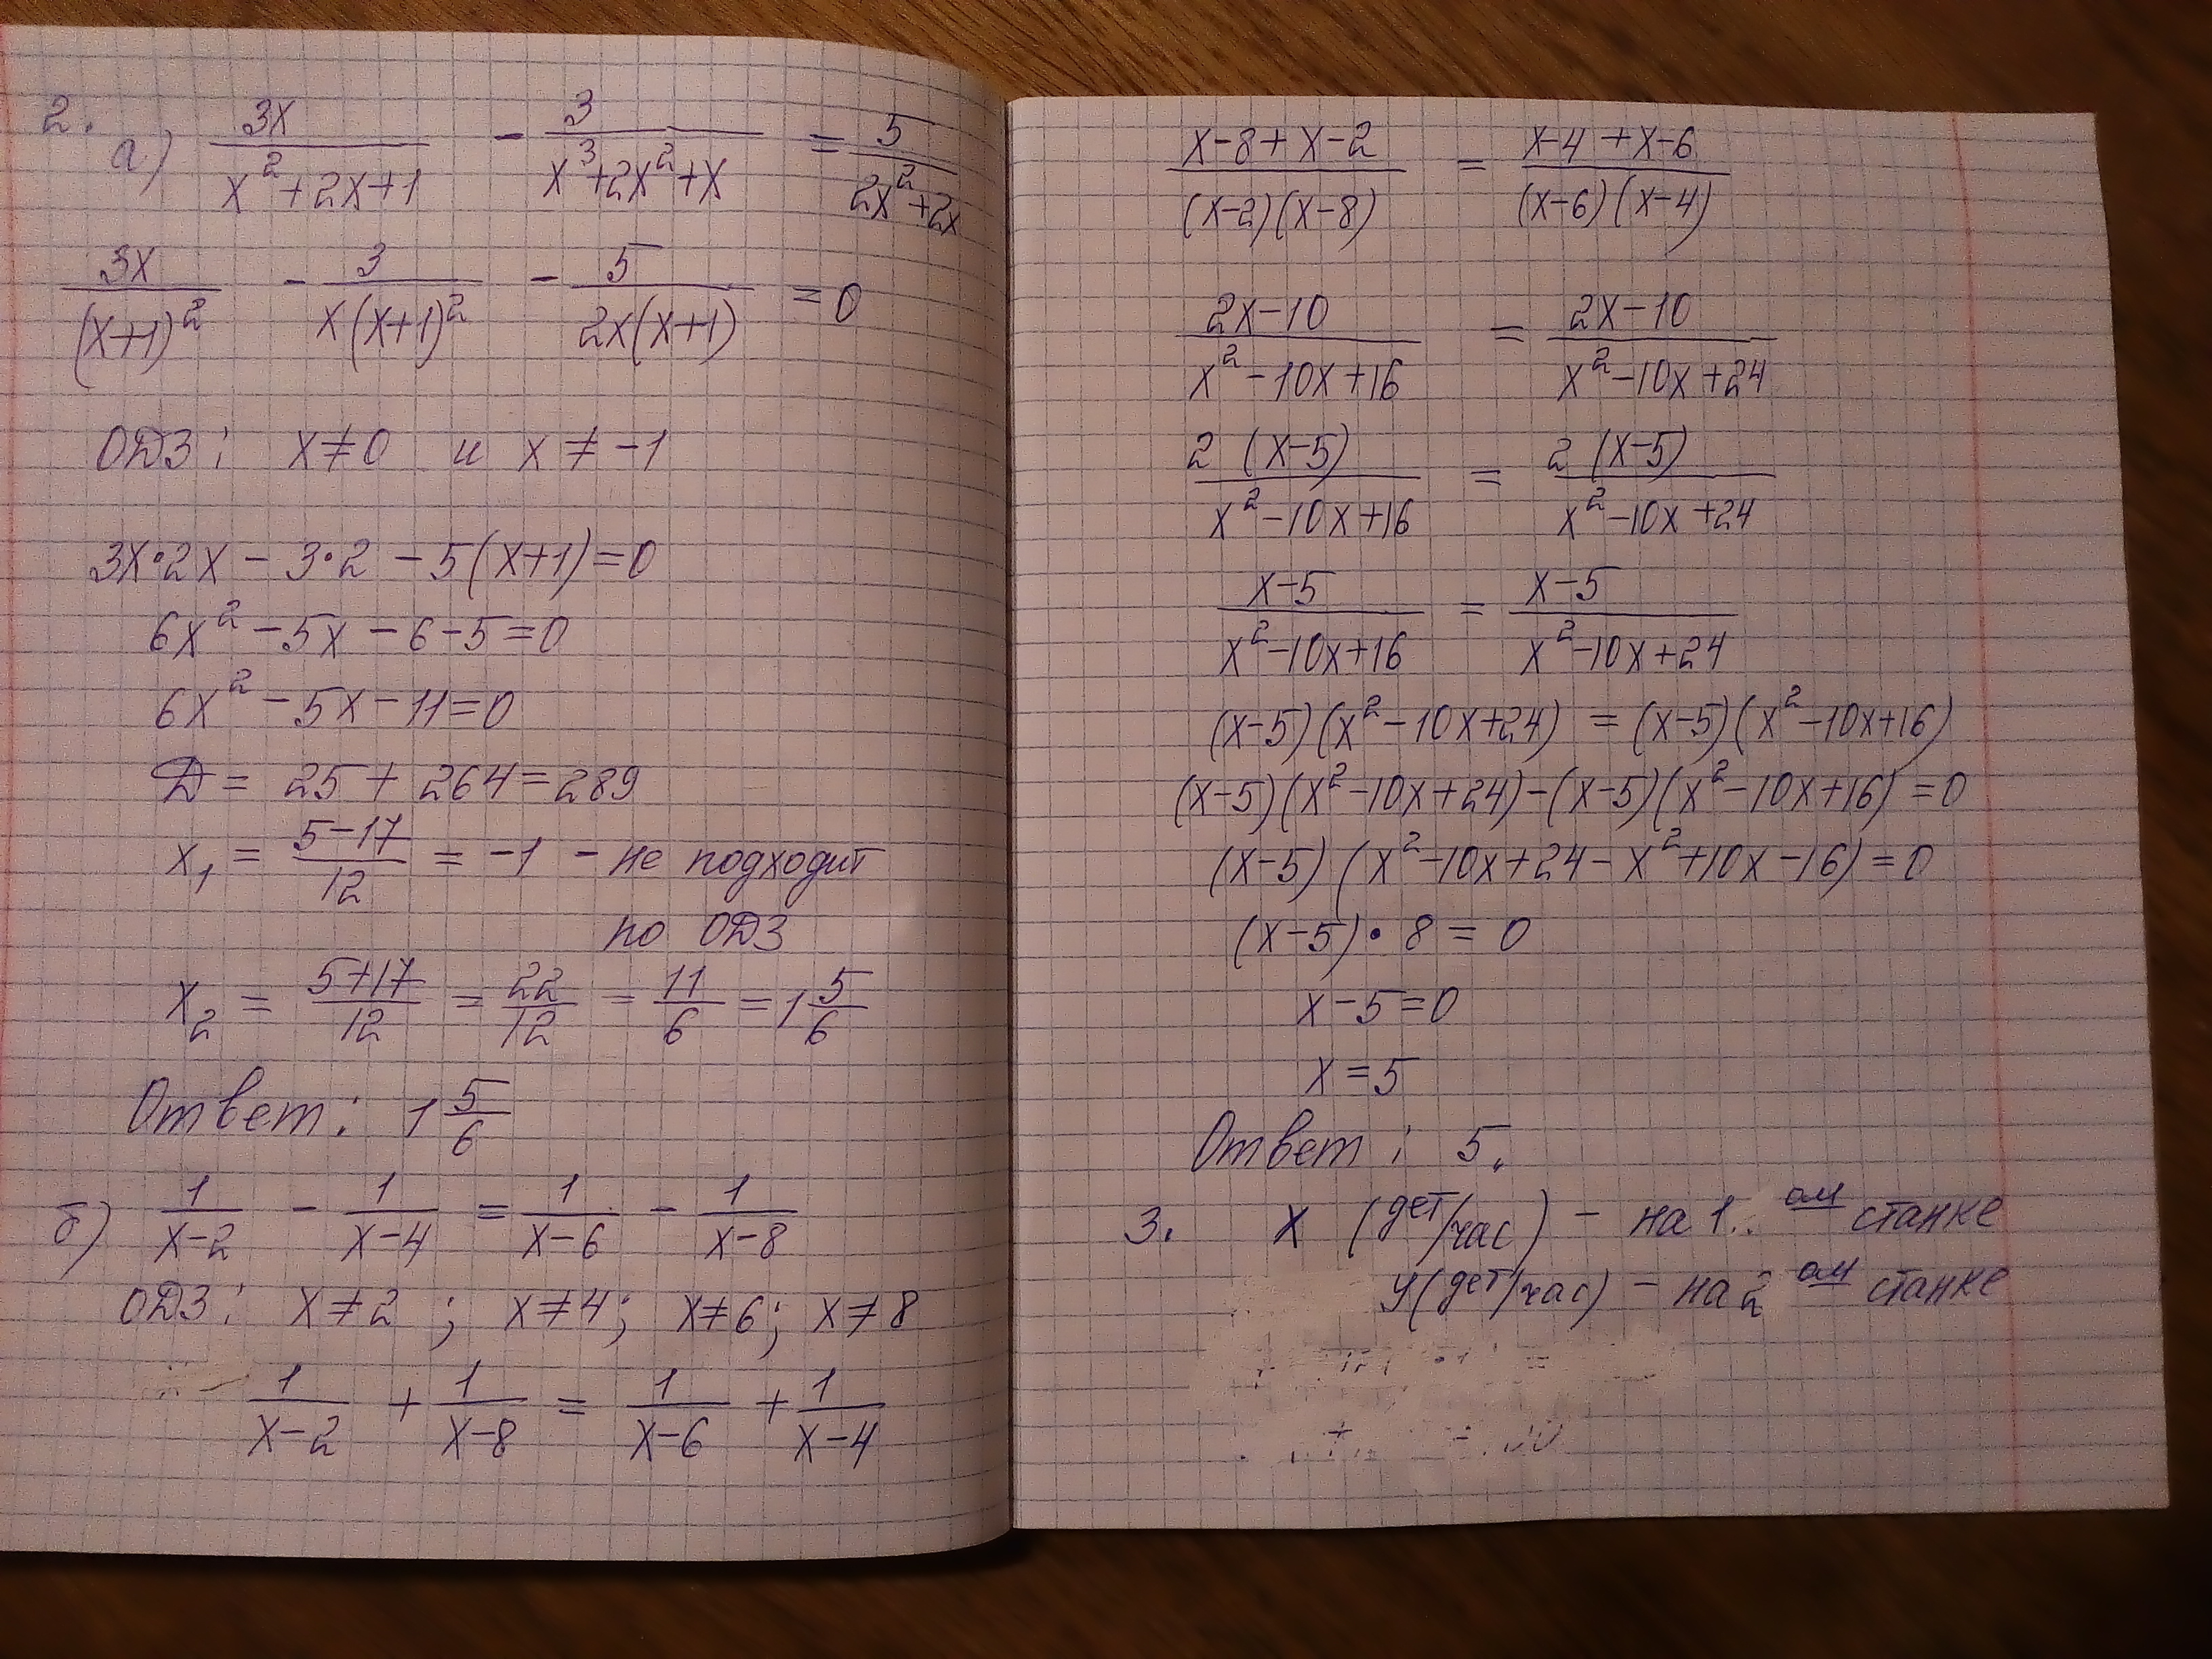 2. а) 3x/(x²+2x+1) - 3/(x³+2x²+x) = 5/(2x²+2x)
3x/(x+1)² - 3/(x(x+1)²) - 5/(2x(x+1)) = 0
ОДЗ: x≠0 и x≠-1
3x•2x - 3•2 - 5(x+1)=0
6x² - 5x - 6 - 5 = 0
6x² - 5x - 11 = 0
Д = 25 + 264 = 289
x₁ = (5-17)/12 = -1 - не подходит
по ОДЗ
x₂ = (5+17)/12 = 22/12 = 11/6 = 1 5/6
Ответ: 1 5/6
б) 1/(x-2) - 1/(x-4) = 1/(x-6) - 1/(x-8)
ОДЗ: x≠2; x≠4; x≠6; x≠8
1/(x-2) + 1/(x-8) = 1/(x-6) + 1/(x-4)
(x-8+x-2)/((x-2)(x-8)) = (x-4+x-6)/((x-6)(x-4))
(2x-10)/(x²-10x+16) = (2x-10)/(x²-10x+24)
2(x-5)/(x²-10x+16) = 2(x-5)/(x²-10x+24)
(x-5)/(x²-10x+16) = (x-5)/(x²-10x+24)
(x-5)(x²-10x+24) = (x-5)(x²-10x+16)
(x-5)(x²-10x+24)-(x-5)(x²-10x+16)=0
(x-5)(x²-10x+24-x²+10x-16)=0
(x-5)•8=0
x-5=0
x=5
Ответ: 5.
3. x (дет/час) - на 1ом станке
y(дет/час) - на 2ом станке